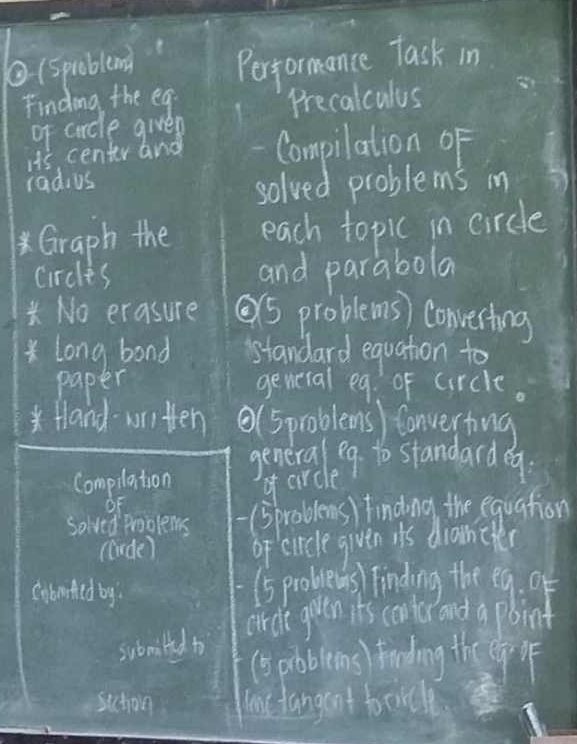 Performance Task in
Precalculus
- Compilation of
solved problems in
each topic in circle
and parabola
⊙(5 problems) Converting
standard equation to
general eq. of circle.
⊙(5problems) Converting
general eq. to standard eq.
of circle
-(5problems) finding the equation
of circle given its diameter
- (5 problems) Finding the eq. of
circle given its center and a point
- (5 problems) finding the eq. of
line tangent to circle.
⊙(5problem)
Finding the eq.
of circle given
its center and
radius
* Graph the
circles
* No erasure
* Long bond
paper
* Hand-written
Compilation
of
Solved Problems
(Circle)
Submitted by:
submitted to
section